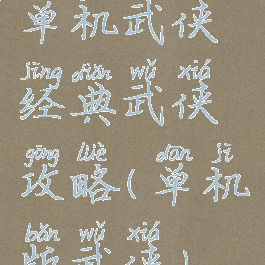 单机武侠
jīng diǎn wǔ xiá
经典武侠
gōng lüè dān jī
攻略(单机
bǎn wǔ xiá
版武侠)